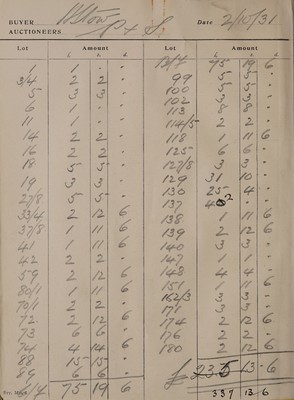 BUYER
P & S.
Date 2/10/31
AUCTIONEERS
Lot Amount Lot Amount
£ s. d. £ s. d.
1 1 · ·
3/4 2 2 ·
5 3 3 ·
6 1 · ·
11 1 · ·
14 2 2 ·
16 2 2 ·
18 5 5 ·
19 3 3 ·
27/8 5 5 ·
33/4 2 12 6
37/8 1 11 6
41 1 11 6
42 2 2 ·
59 2 12 6
80/1 1 11 6
70/1 2 2 ·
72 2 12 6
73 6 6 ·
74 4 14 6
88 15 15 ·
89 6 6 ·
75 19 6
75 19 6
99 5 5 ·
100 5 5 ·
102 3 3 ·
113 8 8 ·
114/5 2 2 ·
118 1 11 6
125 6 6 ·
127/8 3 3 ·
129 31 10 ·
130 25 4 ·
137
138 1 11 6
139 2 12 6
140 3 3 ·
147 1 1 ·
148 4 4 ·
151 1 11 6
162/3 3 3 ·
171 3 3 ·
174 2 12 6
176 2 2 ·
180 2 12 6
£ 235 13 6
337 13 6